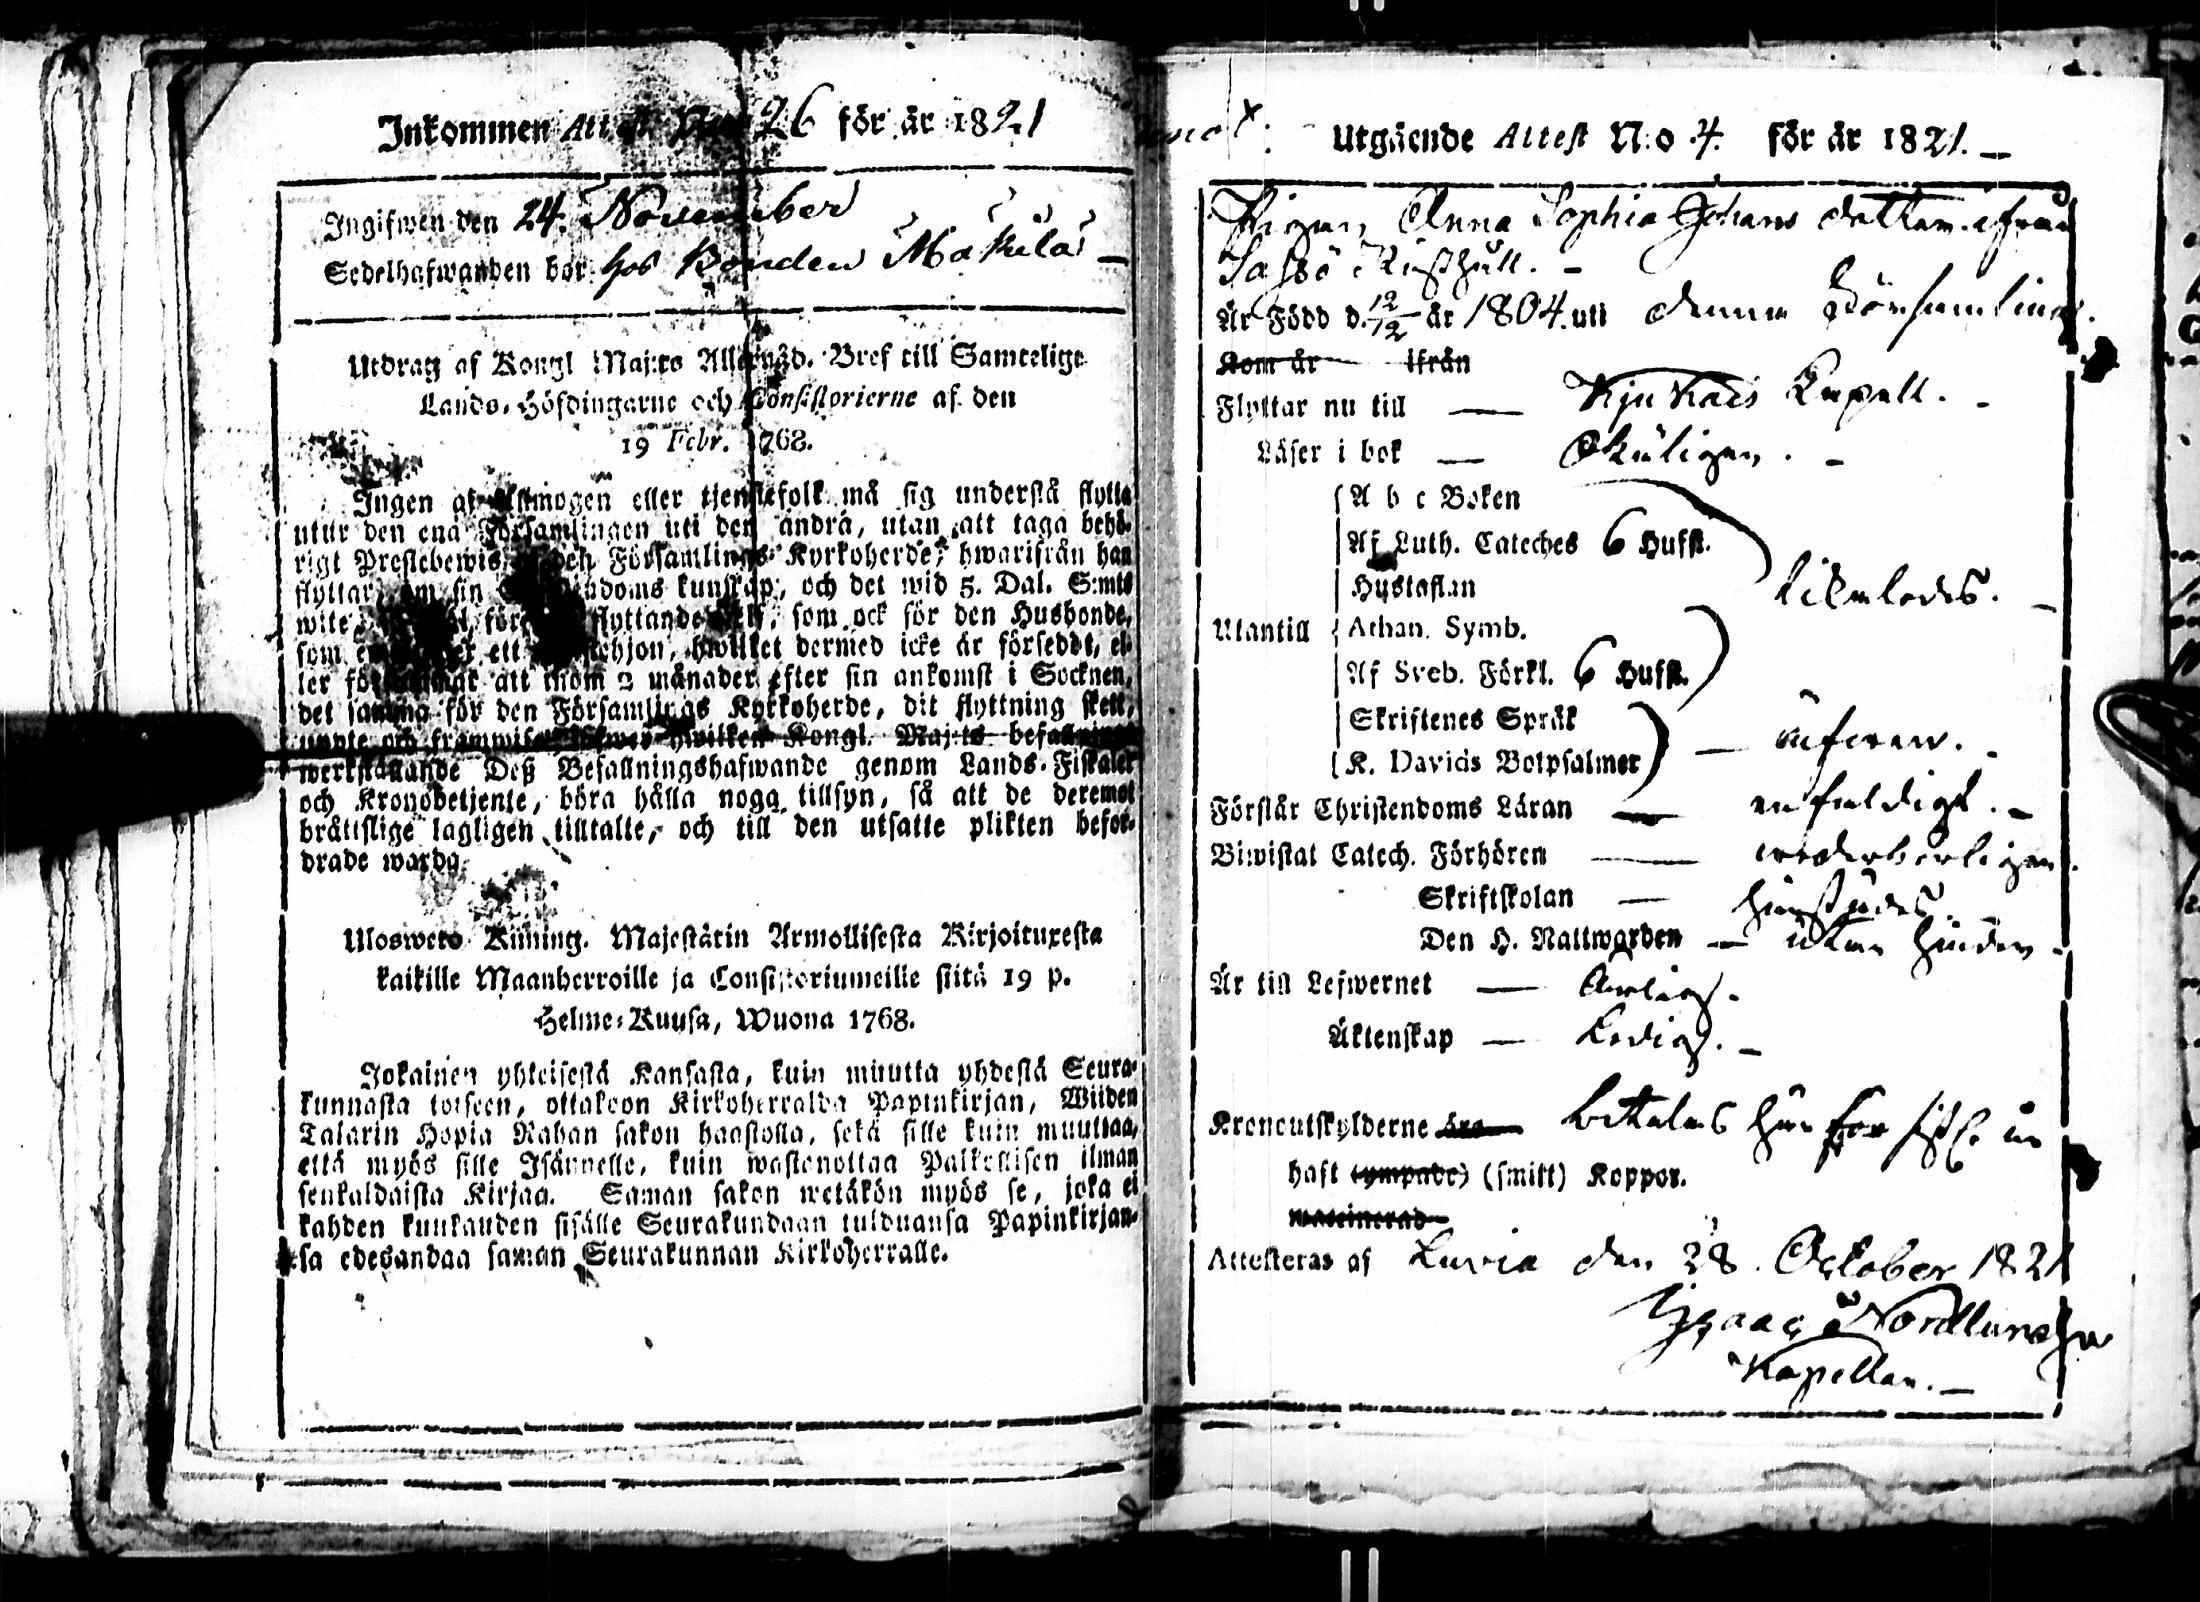 Inkommen Attest N:o 26 för år 1821
Ingifwen den 24. November
Sedelhafwanden bor hos Bonden Makila
Utdrag af Kongl Maj:ts Allernåd. Bref till Samtelige
Lands-Höfdingarne och Consistorierne af den
19 Febr. 1768.
Ingen af Allmogen eller tjenstefolk må sig understå flytta
utur den ena Församlingen uti den andra, utan att taga behö-
rigt Prestebewis af den Församlings Kyrkoherde, hwarifrån han
flyttar, om sin Christendoms kunskap; och det wid 5. Dal. S:mts
wite, för flyttande self, som ock för den Husbonde,
som ett tjenstehjon, hwilket dermed icke är försedt, el-
ler försummar att inom 2 månader efter sin ankomst i Socknen,
det samma för den Församlings Kyrkoherde, dit flyttning skett,
uppte och framwisa; öfwer hwilken Kongl. Maj:ts befallnings
werkställande Deß Befallningshafwande genom Lands-Fiskaler
och Kronobetjente, böra hålla noga tillsyn, så att de deremot
bråttslige lagligen tilltalte, och till den utsatte plikten befor-
drade warda.
Ulosweto Kuning. Majestätin Armollisesta Kirjoituxesta
kaikille Maanherroille ja Consistoriumeille siitä 19 p.
Helme-Kuusa, Wuona 1768.
Jokainen yhteisestä Kansasta, kuin muutta yhdestä Seura-
kunnasta toiseen, ottakoon Kirkoherralda Papinkirjan, Wiiden
Talarin Hopia Rahan sakon haastolla, sekä sille kuin muuttaa,
että myös sille Isännelle, kuin wastanottaa Palkollisen ilman
senkaldaista Kirjaa. Saman sakon wetäkön myös se, joka ei
kahden kuukauden sisälle Seurakundaan tulduansa Papinkirjan-
sa edesandaa saman Seurakunnan Kirkoherralle.
Utgående Attest N:o 4. för år 1821.
Pigan Anna Sophia Johans dotter ifrån
Sassö
Är Född d. 12/12 år 1804. uti denna Församling.
Kom år ifrån
Flyttar nu till Kjukais Kapell.
Läser i bok
A b c Boken
Af Luth. Cateches 6 Hufst.
Hustaflan
likaledes.
Utantill Athan. Symb.
Af Sveb. Förkl. 6 Hufst.
Skriftenes Språk
K. Davids Botpsalmer
Förstår Christendoms Läran enfaldigt.
Biwistat Catech. Förhören wederbörligen.
Skriftskolan
Den H. Nattwarden utan hinder
Är till Lefwernet ärlig.
Äktenskap Ledig.
Kronoutskylderne äro betalas här för
haft (ympade) (smitt) Koppor.
waccinerad
Attesteras af Luvia den 28. October 1821
Isaac Nordlund
Kapellan.